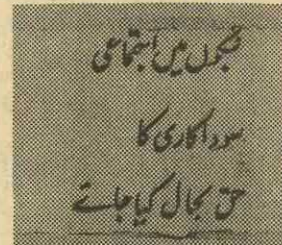 بنکوں میں اجتماعی
سوداکاری کا
حق بحال کیا جائے